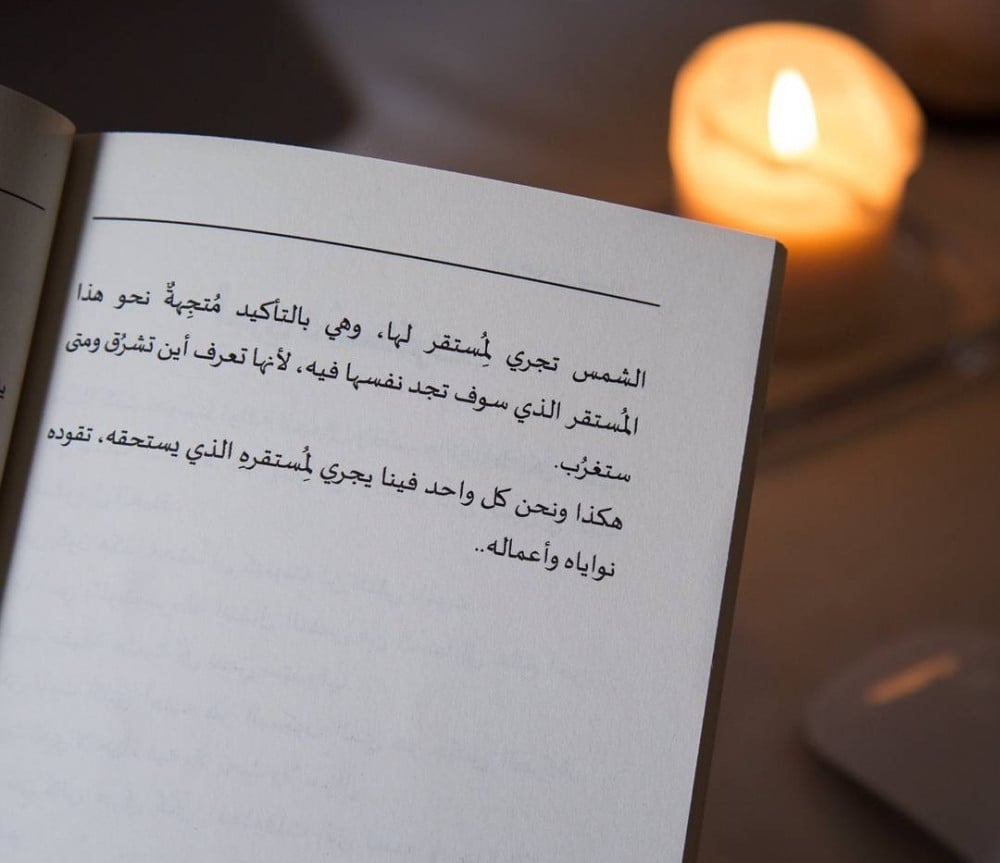 الشمس تجري لِمُستقر لها، وهي بالتأكيد مُتجِهةٌ نحو هذا
المُستقر الذي سوف تجد نفسها فيه، لأنها تعرف أين تشرُق ومتى
ستغرُب.
هكذا ونحن كل واحد فينا يجري لِمُستقرهِ الذي يستحقه، تقوده
نواياه وأعماله..